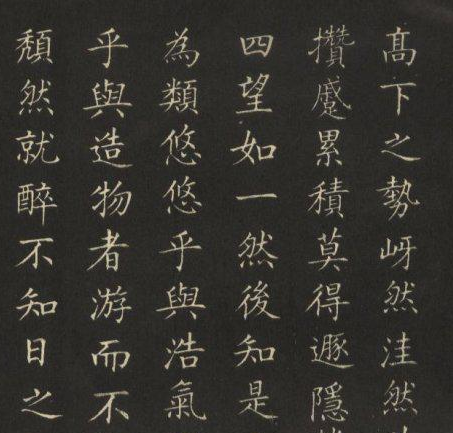 高下之勢岈然洼然
攢蹙累積莫得遯隱
四望如一然後知是
為類悠悠乎與浩氣
乎與造物者游而不
頹然就醉不知日之